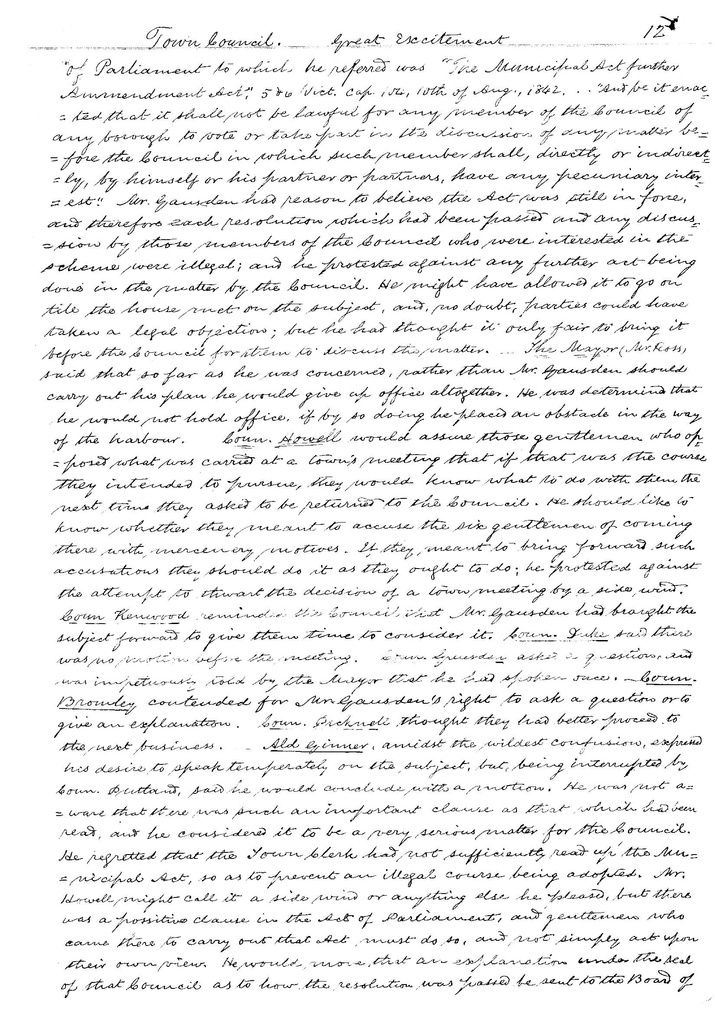 Town Council. Great Excitement 12
"of Parliament to which he referred was "The Municipal Act further
Ammendment Act", 5&6 Vict. Cap. 104, 10th of Aug., 1842. .. "And be it enac-
=ted that it shall not be lawful for any member of the Council of
any borough to vote or take part in the discussion of any matter be-
=fore the Council in which such member shall, directly or indirect-
=ly, by himself or his partner or partners, have any pecuniary inter-
=est". Mr. Gausden had reason to believe the Act was still in force,
and therefore each resolution which had been passed and any discus-
=sion by those members of the Council who were interested in the
scheme were illegal; and he protested against any further act being
done in the matter by the Council. He might have allowed it to go on
till the house met on the subject, and, no doubt, parties could have
taken a legal objection; but he had thought it only fair to bring it
before the Council for them to discuss the matter. ... The Mayor (Mr. Ross)
said that so far as he was concerned, rather than Mr. Gausden should
carry out his plan he would give up office altogether. He was determined that
he would not hold office, if by so doing he placed an obstacle in the way
of the harbour. Coun. Howell would assure those gentlemen who op-
=posed what was carried at a town's meeting that if that was the course
they intended to pursue, they would know what to do with them the
next time they asked to be returned to the Council. He should like to
know whether they meant to accuse the six gentlemen of coming
there with mercenery motives. If they meant to bring forward such
accusations they should do it as they ought to do; he protested against
the attempt to thwart the decision of a town meeting by a side wind.
Coun Kenwood reminded the Council that Mr. Gausden had brought the
subject forward to give them time to consider it. Coun. Duke said there
was no motion before the meeting. Coun. Gausden asked a question, and
was impetuously told by the Mayor that he had spoken once. - Coun.
Bromley contended for Mr. Gausden's right to ask a question or to
give an explanation. Coun. thought they had better proceed to
the next business. - Ald Ginner, amidst the wildest confusion, expressed
his desire to speak temperately on the subject, but, being interrupted by
Coun. Putland, said he would conclude with a motion. He was not a-
=ware that there was such an important clause as that which had been
read, and he considered it to be a very serious matter for the Council.
He regretted that the Town Clerk had not sufficiently read up the Mu-
=nicipal Act, so as to prevent an illegal course being adopted. Mr.
Howell might call it a side wind or anything else he pleased, but there
was a possitive clause in the Act of Parliament, and gentlemen who
came there to carry out that Act must do so, and not simply act upon
their own view. He would move that an explanation under the seal
of that Council as to how the resolution was passed be sent to the Board of